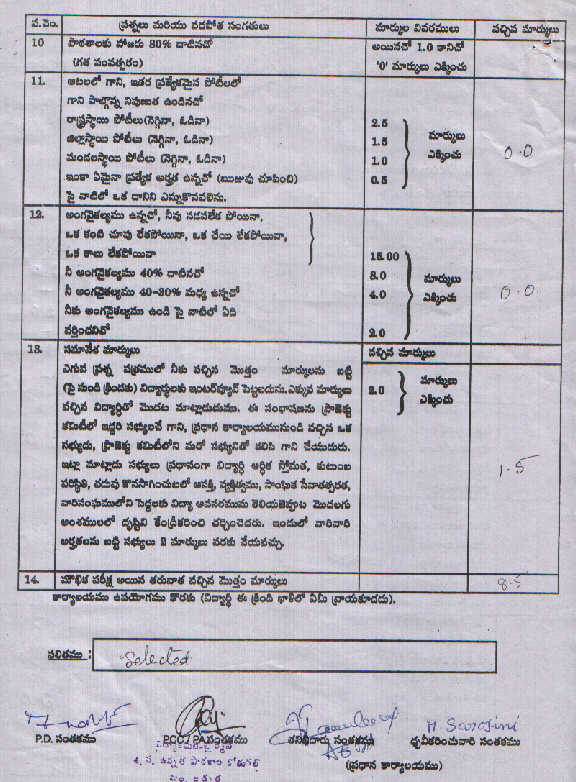 వ.నెం. ప్రశ్నలు మరియు వడపోత సంగతులు మార్కుల వివరములు వచ్చిన మార్కులు
10 పాఠశాలకు హాజరు 80% దాటినచో అయినచో 1.0 కానిచో
(గత సంవత్సరం) '0' మార్కులు ఎక్కించు
11. ఆటలలో గాని, ఇతర ప్రత్యేకమైన పోటీలలో
గాని పాల్గొన్న నిపుణత ఉండినచో
రాష్ట్రస్థాయి పోటీలు(నెగ్గినా, ఓడినా) 2.5
జిల్లాస్థాయి పోటీలు (నెగ్గినా, ఓడినా) 1.5 మార్కులు
మండలస్థాయి పోటీలు (నెగ్గినా, ఓడినా) 1.0 ఎక్కించు 0.0
ఇంకా ఏమైనా ప్రత్యేక అర్హత ఉన్నచో (ఋజువు చూపించి) 0.5
పై వాటిలో ఒక దానిని ఎన్నుకొనవలెను.
12. అంగవైకల్యము ఉన్నచో, నీవు నడవలేక పోయినా,
ఒక కంటి చూపు లేకపోయినా, ఒక చేయి లేకపోయినా,
ఒక కాలు లేకపోయినా 15.00
నీ అంగవైకల్యము 40% దాటినచో 8.0 మార్కులు
నీ అంగవైకల్యము 40-30% మధ్య ఉన్నచో 4.0 ఎక్కించు 0.0
నీకు అంగవైకల్యము ఉండి పై వాటిలో ఏది
వర్తించనిచో 2.0
13. సమావేశ మార్కులు వచ్చిన మార్కులు
ఎగువ ప్రశ్న పత్రములో నీకు వచ్చిన మొత్తం మార్కులను బట్టి
(పై నుండి క్రిందకు) విద్యార్థులకు ఇంటర్వ్యూలో పెట్టబడును.ఎక్కువ మార్కులు 2.0 మార్కులు
వచ్చిన విద్యార్థితో మొదట మాట్లాడుదుము. ఈ సంభాషణను ప్రాజెక్టు ఎక్కించు
కమిటీలో ఇద్దరి సభ్యులచే గాని, ప్రధాన కార్యాలయమునుండి వచ్చిన ఒక
సభ్యుడు, ప్రాజెక్టు కమిటీలోని మరో సభ్యునితో కలిసి గాని చేయుదురు.
ఇట్లా మాట్లాడు సభ్యులు ప్రధానంగా విద్యార్థి ఆర్థిక స్తోమత, కుటుంబ 1.5
పరిస్థితి, చదువు కొనసాగించుటలో ఆసక్తి, వ్యక్తిత్వము, సాంఘిక సేవాతత్పరత,
వారిసంఘములోని పెద్దలకు విద్యా అవసరమును తెలియజెప్పుట మొదలగు
అంశములలో దృష్టిని కేంద్రీకరించి చర్చించెదరు. ఇందులో వారివారి
అర్హతలను బట్టి సభ్యులు 2 మార్కులు వరకు వేయవచ్చు.
14. మౌఖిక పరీక్ష అయిన తరువాత వచ్చిన మొత్తం మార్కులు 8.5
కార్యాలయము ఉపయోగము కొరకు (విద్యార్థి ఈ క్రింది ఖాళీలో ఏమి వ్రాయకూడదు).
ఫలితము : Selected
M Sarojini
P.D. సంతకము POO / PA సంతకము తనిఖీదారు సంతకము ధృవీకరించువారి సంతకము
(ప్రధాన కార్యాలయం)